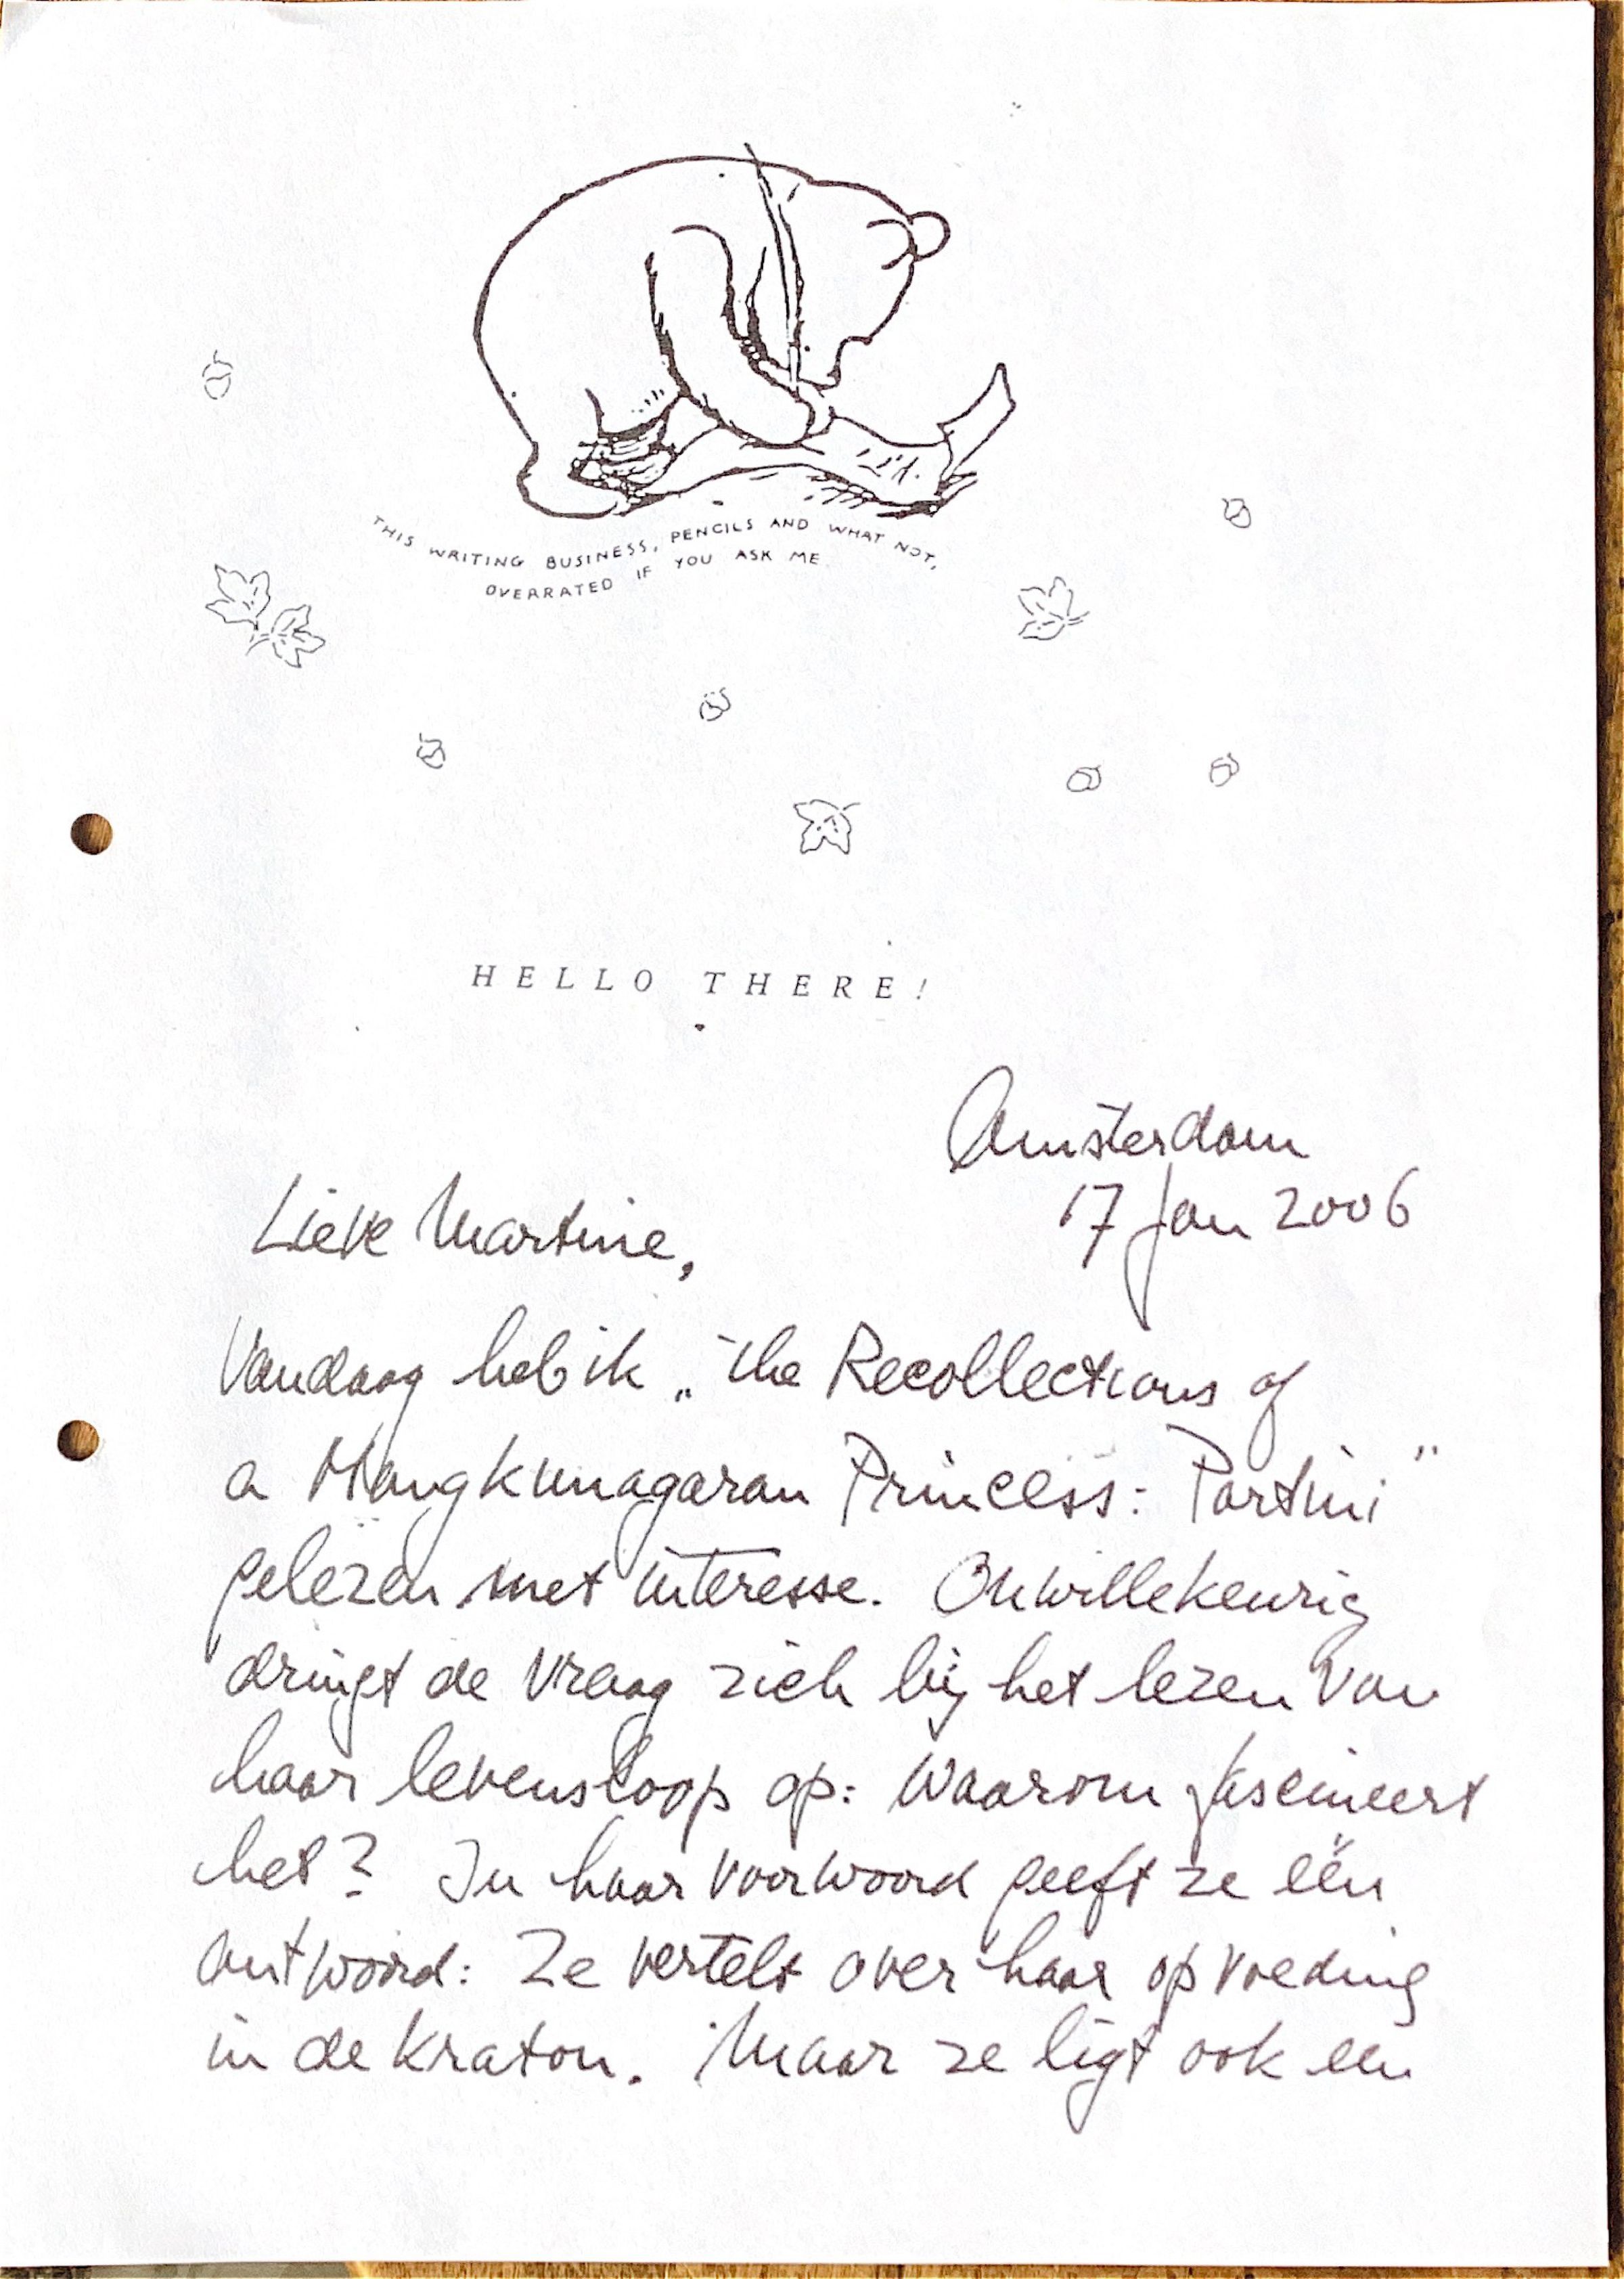 THIS WRITING BUSINESS, PENCILS AND WHAT NOT,
OVERRATED IF YOU ASK ME
HELLO THERE!
Amsterdam
17 jan 2006
Lieve Martine,
Vandaag heb ik „The Recollections of
a Mangkunagaran Princess: Partini"
gelezen met interesse. Onwillekeurig
dringt de vraag zich bij het lezen van
haar levensloop op: Waarom fascineert
het? In haar voorwoord geeft ze één
antwoord: Ze vertelt over haar opvoeding
in de kraton. Maar ze ligt ook een